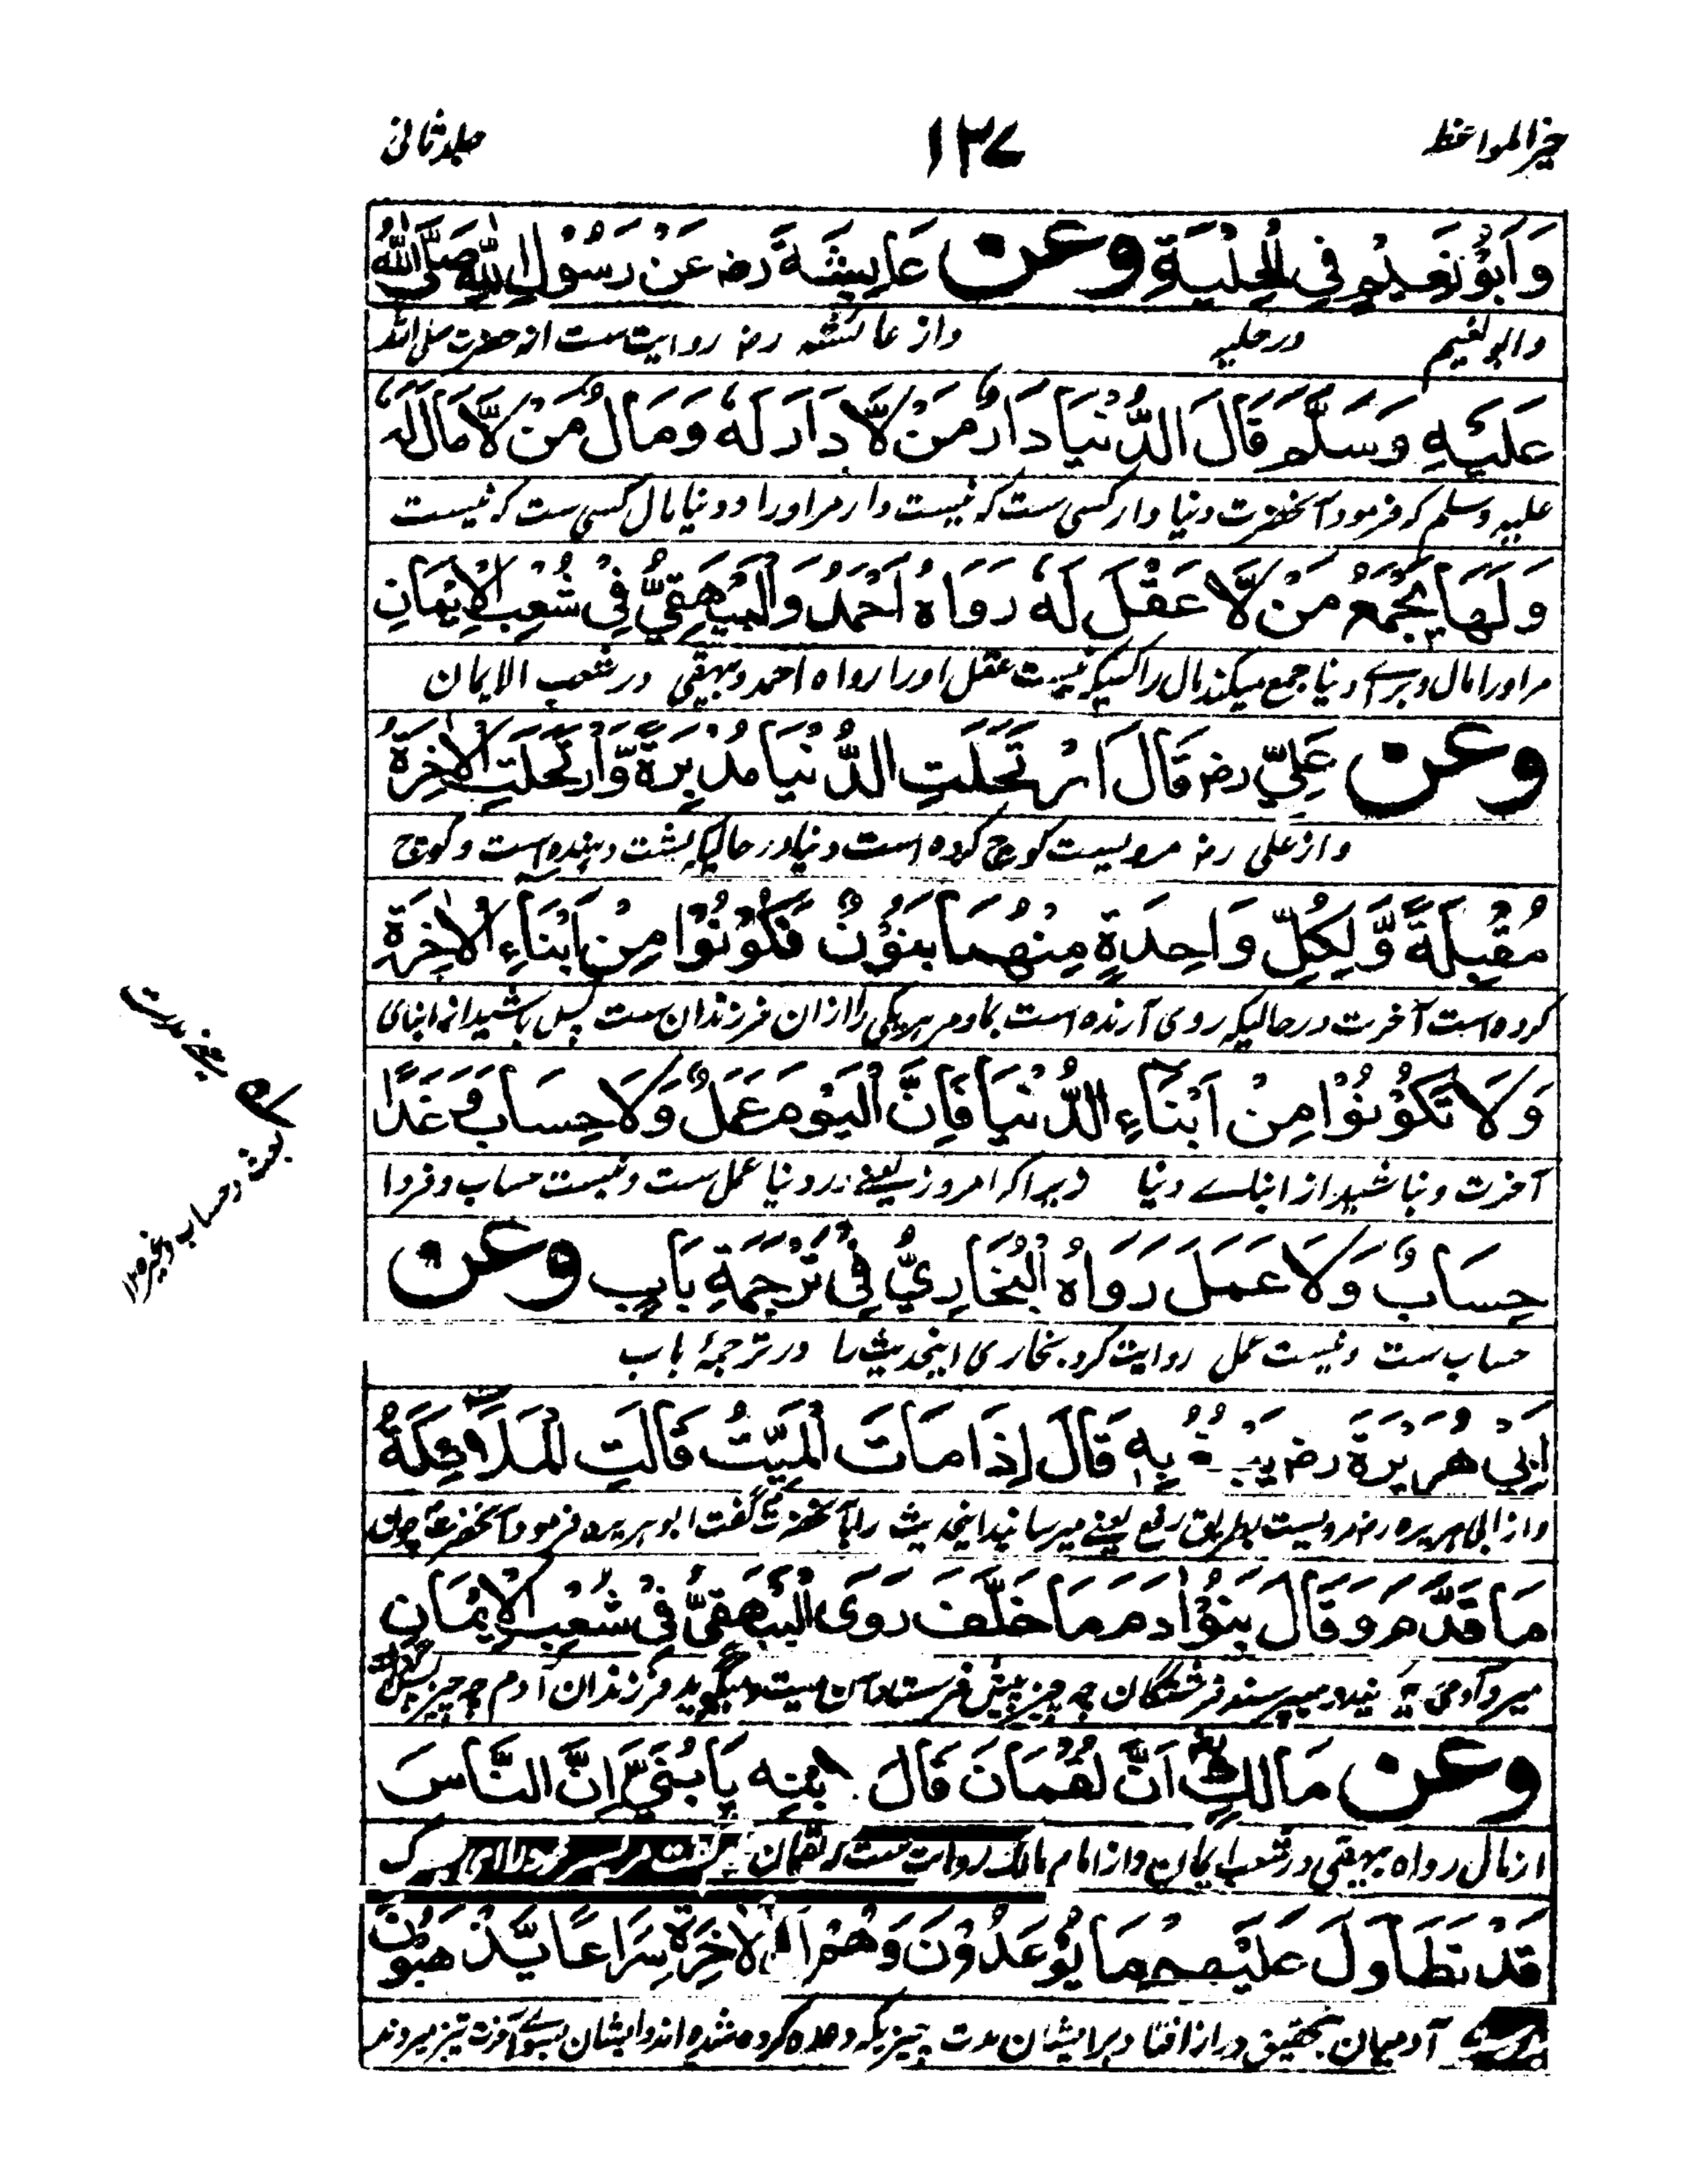 خیر المواعظ ۱۳۷ جلد ثانی
وَاَبُوْنُعَیْمٍ فِی الْحِلْیَةِ وعن عَایِشَةَ رض عَنْ رَسُوْلِ اللّٰهِ صَلَّی اللّٰهُ
وابو نعیم در حلیه واز عائشه رض روایت ست از حضرت صلی الله
عَلَیْهِ وَسَلَّمَ قَالَ الدُّنْیَا دَارُ مَنْ لَّا دَارَ لَهٗ وَمَالُ مَنْ لَّا مَالَ لَهٗ
علیه وسلم که فرمود آنحضرت دنیا دار کسی ست که نیست دار مر اورا و دنیا مال کسی ست که نیست
وَلَهَا یَجْمَعُ مَنْ لَّا عَقْلَ لَهٗ رَوَاهُ اَحْمَدُ وَالْبَیْهَقِیُّ فِیْ شُعَبِ الْاِیْمَانِ
مر اورا مال و برای دنیا جمع میکند مال را کسیکه نیست عقل اورا رواه احمد وبیهقی در شعب الایمان
وعن عَلِیٍّ رض قَالَ ارْتَحَلَتِ الدُّنْیَا مُدْبِرَةً وَّارْتَحَلَتِ الْاٰخِرَةُ
واز علی رض مرویست کوچ کرده است دنیا در حالیکه پشت دهنده است و کوچ
مُقْبِلَةً وَّلِکُلِّ وَاحِدَةٍ مِنْهُمَا بَنُوْنَ فَکُوْنُوْا مِنْ اَبْنَاءِ الْاٰخِرَةِ
کرده است آخرت در حالیکه روی آرنده است و مر هر یکی را ازان فرزندان ست پس باشید از ابنای
وَلَا تَکُوْنُوْا مِنْ اَبْنَاءِ الدُّنْیَا فَاِنَّ الْیَوْمَ عَمَلٌ وَلَا حِسَابَ وَغَدًا
آخرت و نباشید از ابنای دنیا زیرا که امروز یعنے در دنیا عمل ست و نیست حساب و فردا
حِسَابٌ وَلَا عَمَلَ رَوَاهُ الْبُخَارِیُّ فِیْ تَرْجَمَةِ بَابٍ وعن
حساب ست و نیست عمل روایت کرد بخاری اینحدیث را در ترجمهٔ باب
اَبِیْ هُرَیْرَةَ رض یَبْلُغُ بِهٖ قَالَ اِذَا مَاتَ الْمَیِّتُ قَالَتِ الْمَلٰٓئِکَةُ
واز ابی هریره رض مرویست بطریق رفع یعنے میرسانید اینحدیث را بآنحضرت گفت ابو هریره فرمود آنحضرت چون
مَا قَدَّمَ وَقَالَ بَنُوْ اٰدَمَ مَا خَلَّفَ رَوَی الْبَیْهَقِیُّ فِیْ شُعَبِ الْاِیْمَانِ
میرد آدمی میپرسند فرشتگان چه چیز پیش فرستاد این میت و میگوید فرزندان آدم چه چیز پس گذاشت
وعن مَالِكٍ اَنَّ لُقْمَانَ قَالَ لِابْنِهٖ یَا بُنَیَّ اِنَّ النَّاسَ
از مال رواه بیهقی در شعب ایمان واز امام مالک روایت ست که لقمان
قَدْ تَطَاوَلَ عَلَیْهِمْ مَا یُوْعَدُوْنَ وَهُمْ اِلَی الْاٰخِرَةِ سِرَاعًا یَّذْهَبُوْنَ
آدمیان بتحقیق دراز افتاد بر ایشان مدت چیزیکه وعده کرده شده اند و ایشان بسوے آخرت تیز میروند
یعنے مدت
بعث و حساب و غیره ۱۲